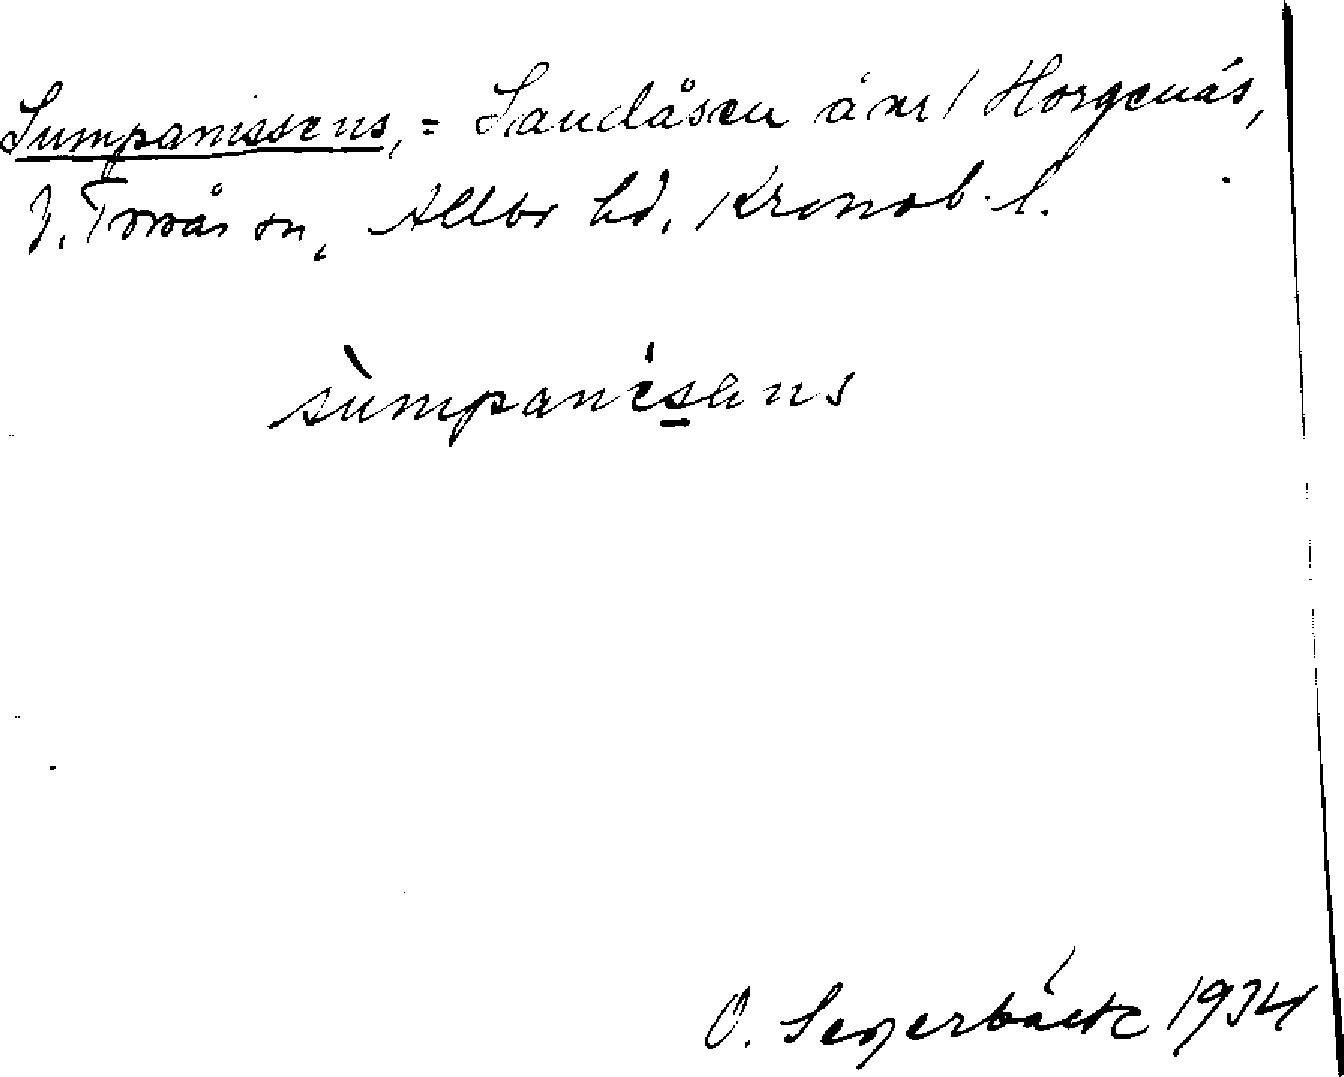 Sumpanissens, = Sandåsen under Horgenäs,
V. Torsås sn, Allbo hd, Kronob. l.
sùmpanísens
O. Segerbäck 1934